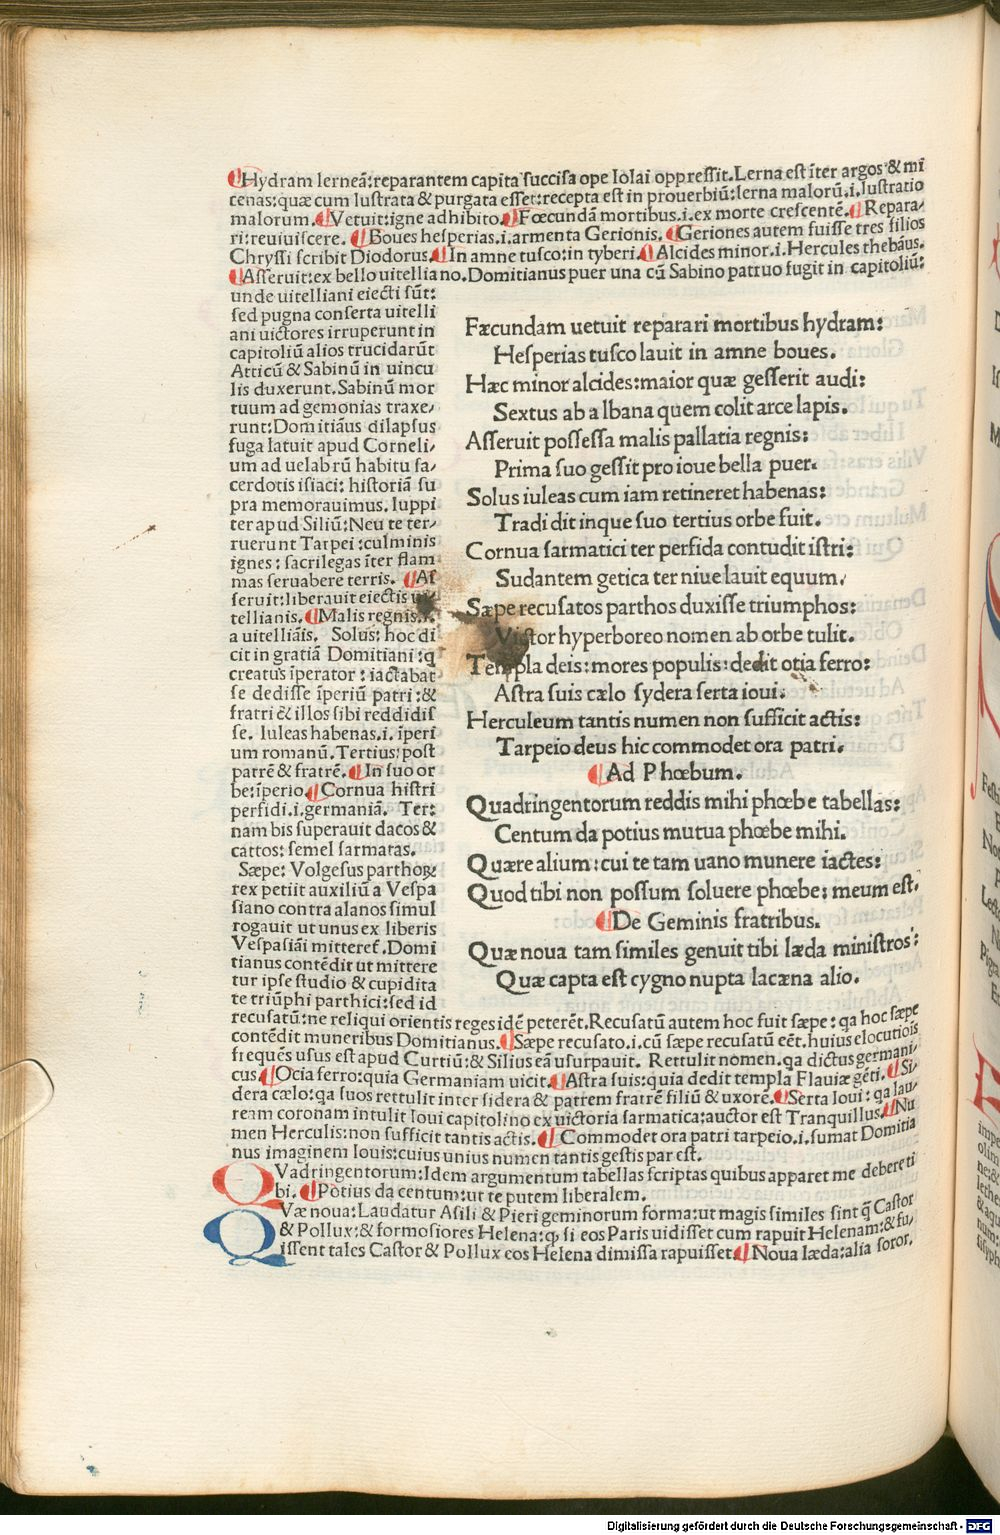 ¶Hydram lerneã:reparantem capita succisa ope Iolai oppressit.Lerna est ĩter argos & mi
cenas:quæ cum lustrata & purgata esset:recepta est in prouerbiũ:lerna malorũ.i.lustratio
malorum.¶Vetuit:igne adhibito.¶Fœcundã mortibus.i.ex morte crescentẽ.¶Repara/
ri:reuiuiscere. ¶Boues hesperias.i.armenta Gerionis. ¶Geriones autem fuisse tres filios
Chryssi scribit Diodorus.¶In amne tusco:in tyberi.¶Alcides minor.i.Hercules thebãus.
¶Asseruit:ex bello uitelliano.Domitianus puer una cũ Sabino patruo fugit in capitoliũ:
unde uitelliani eiecti sũt:
sed pugna conserta uitelli
ani uictores irruperunt in
capitoliũ alios trucidarũt
Atticũ & Sabinũ in uincu
lis duxerunt.Sabinũ mor
tuum ad gemonias traxe/
runt:Domitiãus dilapsus
fuga latuit apud Corneli/
um ad uelabrũ habitu sa/
cerdotis isiaci: historiã su
pra memorauimus. Iuppi
ter apud Siliũ:Neu te ter/
ruerunt Tarpei :culminis
ignes: sacrilegas ĩter flam
mas seruabere terris. ¶As
seruit:liberauit eiectis
tellianis.¶Malis regnis.
a uitelliãis. Solus: hoc di
cit in gratiã Domitiani :q
creatus ĩperator : iactabat
se dedisse ĩperiũ patri :&
fratri & illos sibi reddidis
se. Iuleas habenas.i. ĩperi
um romanũ.Tertius:post
patrẽ & fratrẽ.¶In suo or
be:ĩperio.¶Cornua histri
perfidi.i.germaniã. Ter:
nam bis superauit dacos &
cattos: semel sarmatas.
Sæpe: Volgesus parthoꝝ
rex petiit auxiliũ a Vespa
siano contra alanos simul
rogauit ut unus ex liberis
Vespasiãi mitteret̃.Domi
tianus contẽdit ut mittere
tur ipse studio & cupidita
te triũphi parthici:sed id
recusatũ:ne reliqui orientis reges idẽ peterẽt.Recusatũ autem hoc fuit sæpe: qa hoc sæpe
contẽdit muneribus Domitianus.¶Sæpe recusato.i.cũ sæpe recusatũ eẽt.huius elocutiõis
frequẽs usus est apud Curtiũ:& Silius eã usurpauit. Rettulit nomen.qa dictus germani/
cus.¶Ocia ferro:quia Germaniam uicit.¶Astra suis:quia dedit templa Flauiæ gẽti.¶Si/
dera cælo:qa suos rettulit inter sidera & patrem fratrẽ filiũ & uxorẽ.¶Serta Ioui: qa lau/
ream coronam intulit Ioui capitolino ex uictoria sarmatica:auctor est Tranquillus.¶Nu
men Herculis:non sufficit tantis actis. ¶Commodet ora patri tarpeio.i.sumat Domitia
nus imaginem Iouis:cuius unius numen tantis gestis par est.
Fæcundam uetuit reparari mortibus hydram:
Hesperias tusco lauit in amne boues.
Hæc minor alcides:maior quæ gesserit audi:
Sextus ab albana quem colit arce lapis.
Asseruit possessa malis pallatia regnis:
Prima suo gessit pro ioue bella puer.
Solus iuleas cum iam retineret habenas:
Tradidit inque suo tertius orbe fuit.
Cornua sarmatici ter perfida contudit istri:
Sudantem getica ter niue lauit equum.
Sæpe recusatos parthos duxisse triumphos:
Victor hyperboreo nomen ab orbe tulit.
Templa deis:mores populis:dedit otia ferro:
Astra suis cælo sydera serta ioui.
Herculeum tantis numen non sufficit actis:
Tarpeio deus hic commodet ora patri.
¶Ad Phœbum.
Quadringentorum reddis mihi phœbe tabellas:
Centum da potius mutua phœbe mihi.
Quære alium:cui te tam uano munere iactes:
Quod tibi non possum soluere phœbe: meum est.
¶De Geminis fratribus.
Quæ noua tam similes genuit tibi læda ministros:
Quæ capta est cygno nupta lacæna alio.
QVadringentorum:Idem argumentum tabellas scriptas quibus apparet me debere ti
bi. ¶Potius da centum:ut te putem liberalem.
QVæ noua:Laudatur Asili & Pieri geminorum forma:ut magis similes sint q̃ Castor
& Pollux:& formosiores Helena:ꝙ si eos Paris uidisset cum rapuit Helenam:& fu/
issent tales Castor & Pollux eos Helena dimissa rapuisset.¶Noua læda:alia soror.
Digitalisierung gefördert durch die Deutsche Forschungsgemeinschaft - DFG